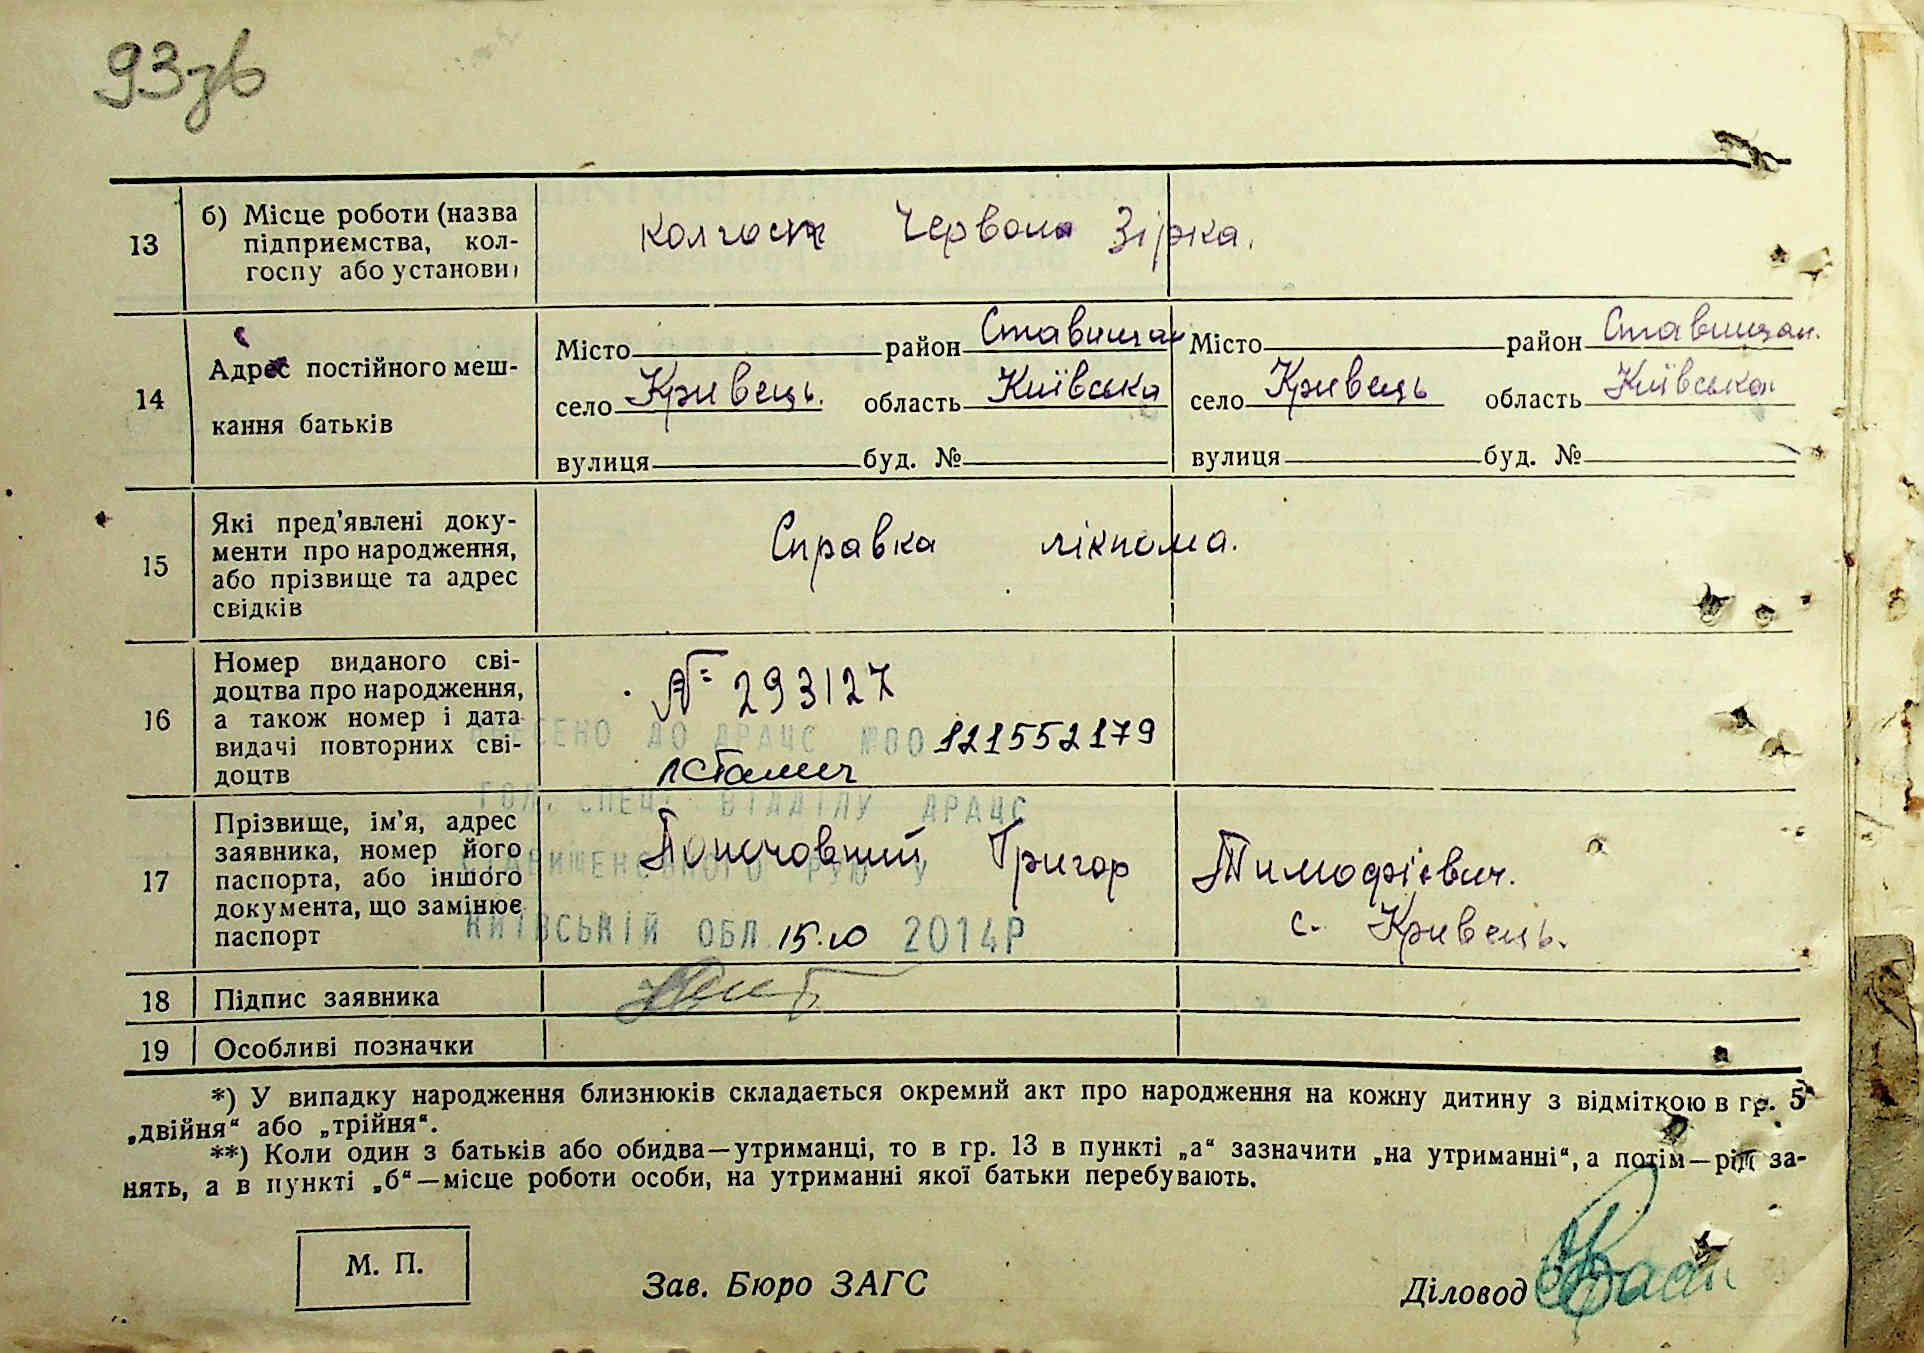 93зв
13 б) Місце роботи (назва підприємства, кол-госпу або установи) колгосп Червона Зірка.
14 Адрес постійного меш-кання батьків
Місто район Ставищан Місто район Ставищан.
село Кривець. область Київська село Кривець область Київська
вулиця буд. № вулиця буд. №
15 Які пред'явлені доку-
менти про народження,
або прізвище та адрес
свідків
Справка лікпома.
16 Номер виданого сві-
доцтва про народження,
а також номер і дата
видачі повторних сві-
доцтв
№ 293127
ВНЕСЕНО ДО ДРАЦС №00 121552179
ГОЛ. СПЕЦ. ВІДДІЛУ ДРАЦС
СТАВИЩЕНСЬКОГО РУЮ У
КИЇВСЬКІЙ ОБЛ 15.10 2014Р
17 Прізвище, ім'я, адрес
заявника, номер його
паспорта, або іншого
документа, що замінює
паспорт
Григор Тимофієвич.
с. Кривець.
18 Підпис заявника
19 Особливі позначки
*) У випадку народження близнюків складається окремий акт про народження на кожну дитину з відміткою в гр. 5
„двійня“ або „трійня“.
**) Коли один з батьків або обидва—утриманці, то в гр. 13 в пункті „а“ зазначити „на утриманні“, а потім—рід за-
нять, а в пункті „б“—місце роботи особи, на утриманні якої батьки перебувають.
М. П.
Зав. Бюро ЗАГС
Діловод